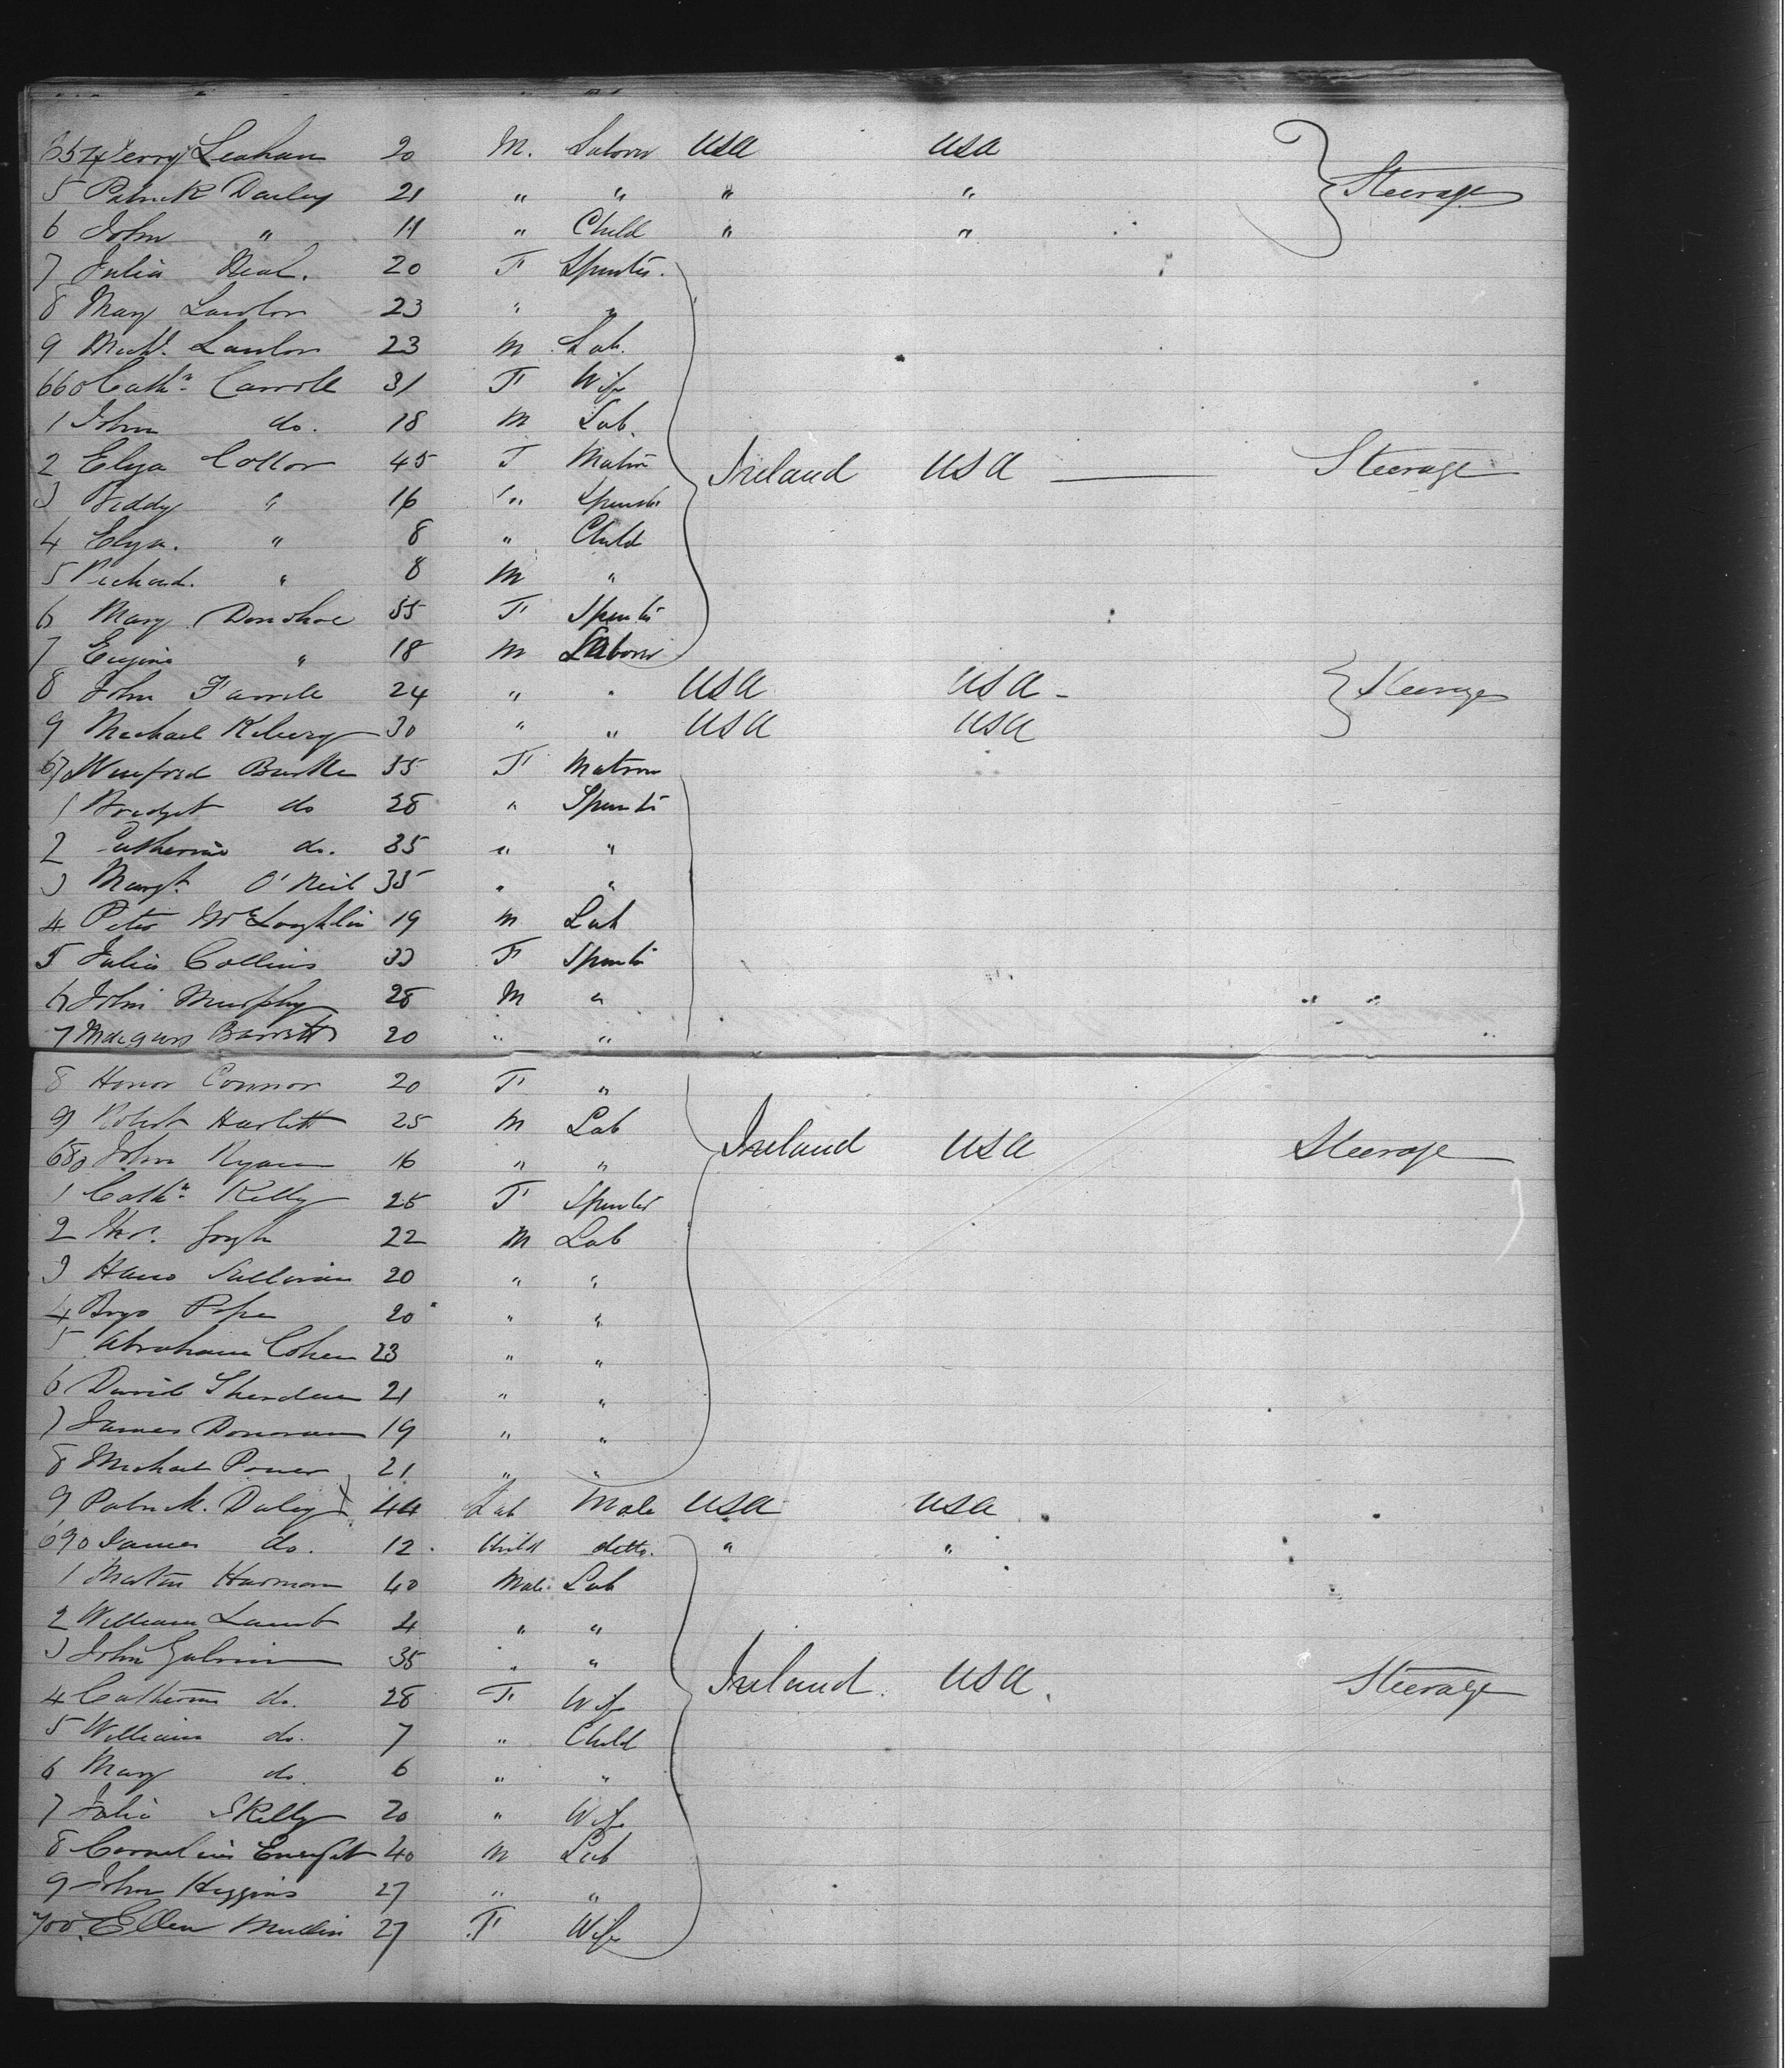 654 Jerry Leahan 20 M. Labour USA USA } Steerage
5 Patrick Danley 21 " " " "
6 John " 11 " Child " "
7 Julia Neal. 20 F Spinter.
8 Mary Lawlor 23 " "
9 Michl. Lawlor 23 M Lab.
660 Cathn. Carroll 31 F Wife
1 John do. 18 M Lab.
2 Eliza Collor 45 F Matrn Ireland USA — Steerage
3 Biddy " 16 " Spinster
4 Eliza. " 8 " Child
5 Richard. " 8 M "
6 Mary Donohoe 55 F Spinter
7 Eugine " 18 M Labour
8 John Farrell 24 " " USA USA - } Steerage
9 Michael 30 " " USA USA
67 Winfred Burke 35 F Matron
1 Bridget do 28 " Spinter
2 Catherine do. 35 " "
3 Margt. O'Neil 35 " "
4 Peter McLoughlin 19 M Lab
5 Julia Collins 33 F Spinter
6 John Murphy 28 M "
7 Barrett 20 " "
8 Honor Connor 20 F "
9 Robert Harlett 25 M Lab Ireland USA Steerage
680 John Ryan 16 " "
1 Cathn. Kelly 25 F Spinter
2 22 M Lab
3 Sullivan 20 " "
4 Pope 20 " "
5 Abraham Cohen 23 " "
6 David Sherdan 21 " "
7 James Donovan 19 " "
8 Michael Power 21 " "
9 Patrick. Daley 44 Lab Male USA USA
690 James do. 12 Child ditto. " "
1 Martin Harmon 40 Male Lab
2 William Lamb 4 " "
3 John Galvin 35 " "
4 Catherine do. 28 F Wife Ireland. USA. Steerage
5 William do. 7 " Child
6 Mary do. 6 " "
7 Julia Skelly 20 " Wife
8 Cornelius Enright 40 M Lab
9 John Higgins 27 " "
700 Ellen Mullin 27 F Wife